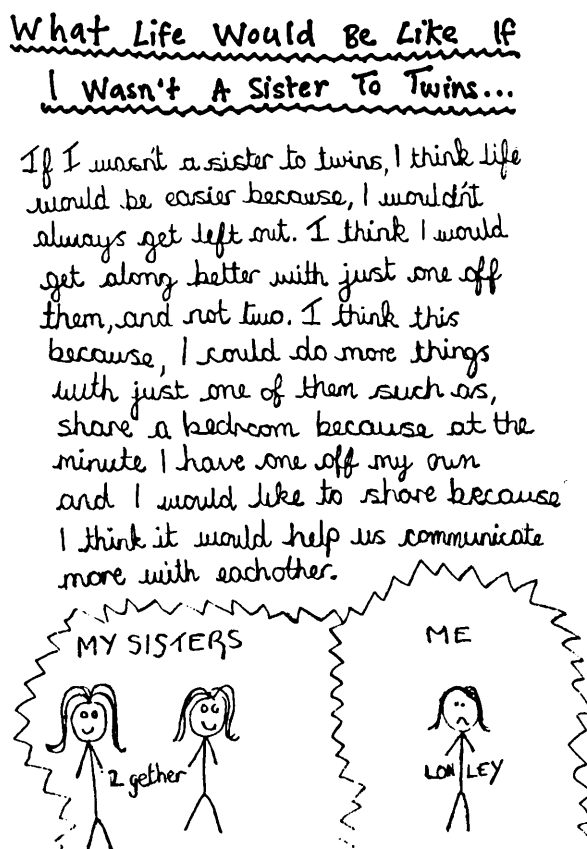 What Life Would Be Like If
I Wasn't A Sister To Twins...
If I wasn't a sister to twins, I think life
would be easier because, I wouldn't
always get left out. I think I would
get along better with just one off
them, and not two. I think this
because, I could do more things
with just one of them such as,
share a bedroom because at the
minute I have one off my own
and I would like to share because
I think it would help us communicate
more with eachother.
MY SISTERS
ME
2 gether
LONLEY